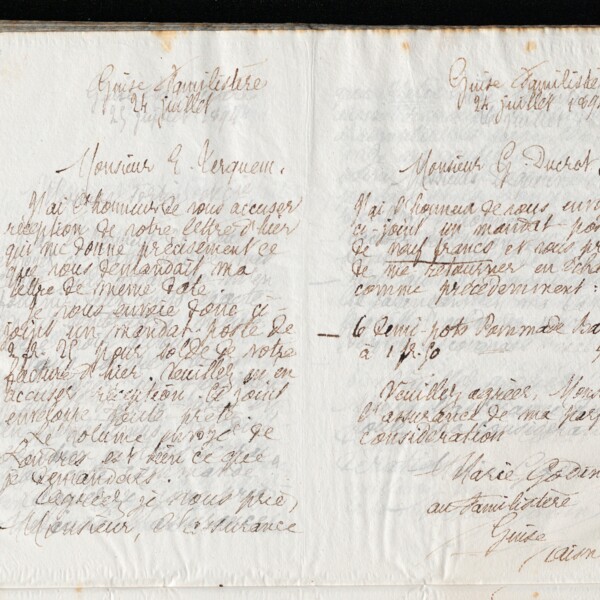 Guise Familistère
24 juillet
Monsieur E. Kerquem.
J'ai l'honneur de vous accuser
réception de votre lettre d'hier
qui me donne précisément ce
que vous demandait ma
lettre de même date.
Je vous envoie donc ci-
joint un mandat-poste de
2 fr. 25 pour solde de votre
facture d'hier. Veuillez m'en
accuser réception. Ci joint
enveloppe toute prête.
Le volume envoyé de
Londres est bien ce que
je demandais.
Agréez, je vous prie,
Monsieur, l'assurance
Guise Familistè
24 juillet 189
Monsieur G. Ducrot
J'ai l'honneur de vous env
ci-joint un mandat-pos
de neuf francs et vous pr
de me retourner en éch
comme précédemment :
6 demi-pots Pommade Ra
à 1 fr. 50
Veuillez agréer, Mons
l'assurance de ma parf
considération
Marie Godin
au Familistère
Guise
Aisn